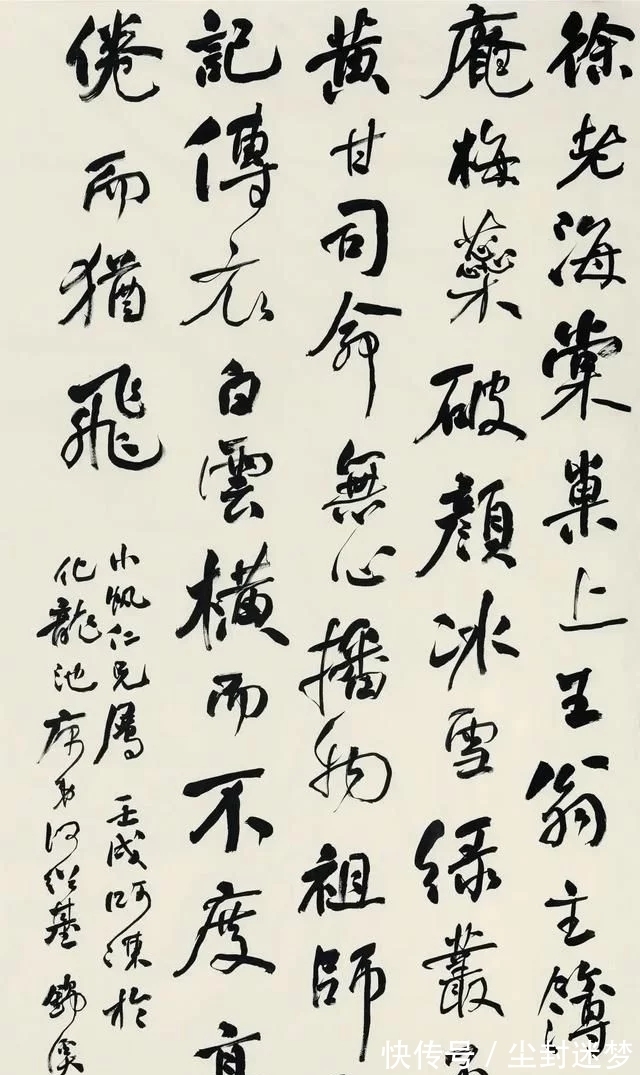 徐老海棠巢上王翁主簿
庵梅蘂破顔冰雪綠叢
黄甘司命無心播物祖師
記傳衣白雲橫而不度高
倦而猶飛
小帆仁兄屬 壬戌呵凍於
化龍池 何紹基
快传号 / 尘封迷梦